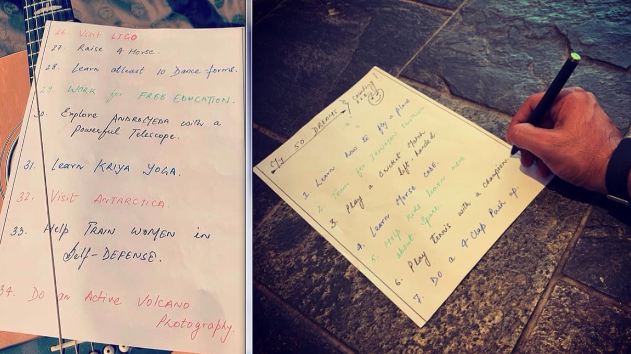 26. Visit LIGO
27. Raise A Horse.
28. Learn atleast 10 Dance forms.
29. WORK for FREE EDUCATION.
30. Explore ANDROMEDA with a
powerful Telescope.
31. Learn KRIYA YOGA.
32. Visit ANTARCTICA.
33. Help TRAIN WOMEN in
Self-DEFENSE.
34. Do an Active Volcano
Photography.
My 50 DREAMS & counting!
1. Learn how to fly a plane
2. Train for
3. Play a cricket match
left handed
4. Learn Morse code.
5. Help kids learn
about Space.
6. Play Tennis with a champion
7. Do a 4 Clap Push up.